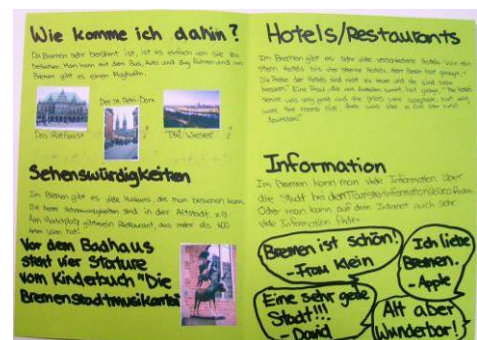 Wie komme ich dahin?
Da Bremen sehr berühmt ist, ist es einfach von Sie zu
besuchen. Man kann mit dem Bus, Auto und Zug fahren und in
Bremen gibt es einen Flughafen.
Der St. Petri-Dom
Das Rathaus
"Die Weser"
Sehenswürdigkeiten
Im Bremen gibt es viele Museums, die man besuchen kann.
Die beste Sehenswürdigkeiten sind in der Altstadt. z.B
Am Marktplatz gibt ein Restaurant, das mehr als 600
Vor dem Badhaus
steht vier Starture
vom Kinderbuch "Die
Bremenstadtmusikanti
Hotels/Restauronts
Im Bremen gibt es sehr viele verschiedene Hotels. Von ein
stern Hotels bis vier sterne Hotels. Herr Bean hat gesagt, "
Die Preise der Hotels sind nicht zu teuer und die sind sehr
bequem." Eine Frau, die aus kommt, hat gesagt, "The hotel
service was very good and the prices were acceptable, but why
were the rooms
Information
Im Bremen kann man viele Information über
die Stadt bei dem Touristeninformationsbüro finden.
Oder man kann auf dem Internet auch sehr
viele Information finden.
Bremen ist schön!
- Frau Klein
Ich liebe
Bremen.
- Apple
Eine sehr geile
Stadt!!!
- David
Alt aber
Wunderbar!